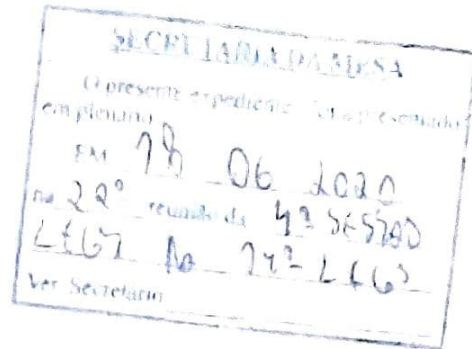 SECRETARIA DA MESA
O presente expediente foi apresentado
em plenário
EM 18 06 2020
na 22ª reunião da 4ª SESSÃO
LEGI da LEGI
Ver. Secretário